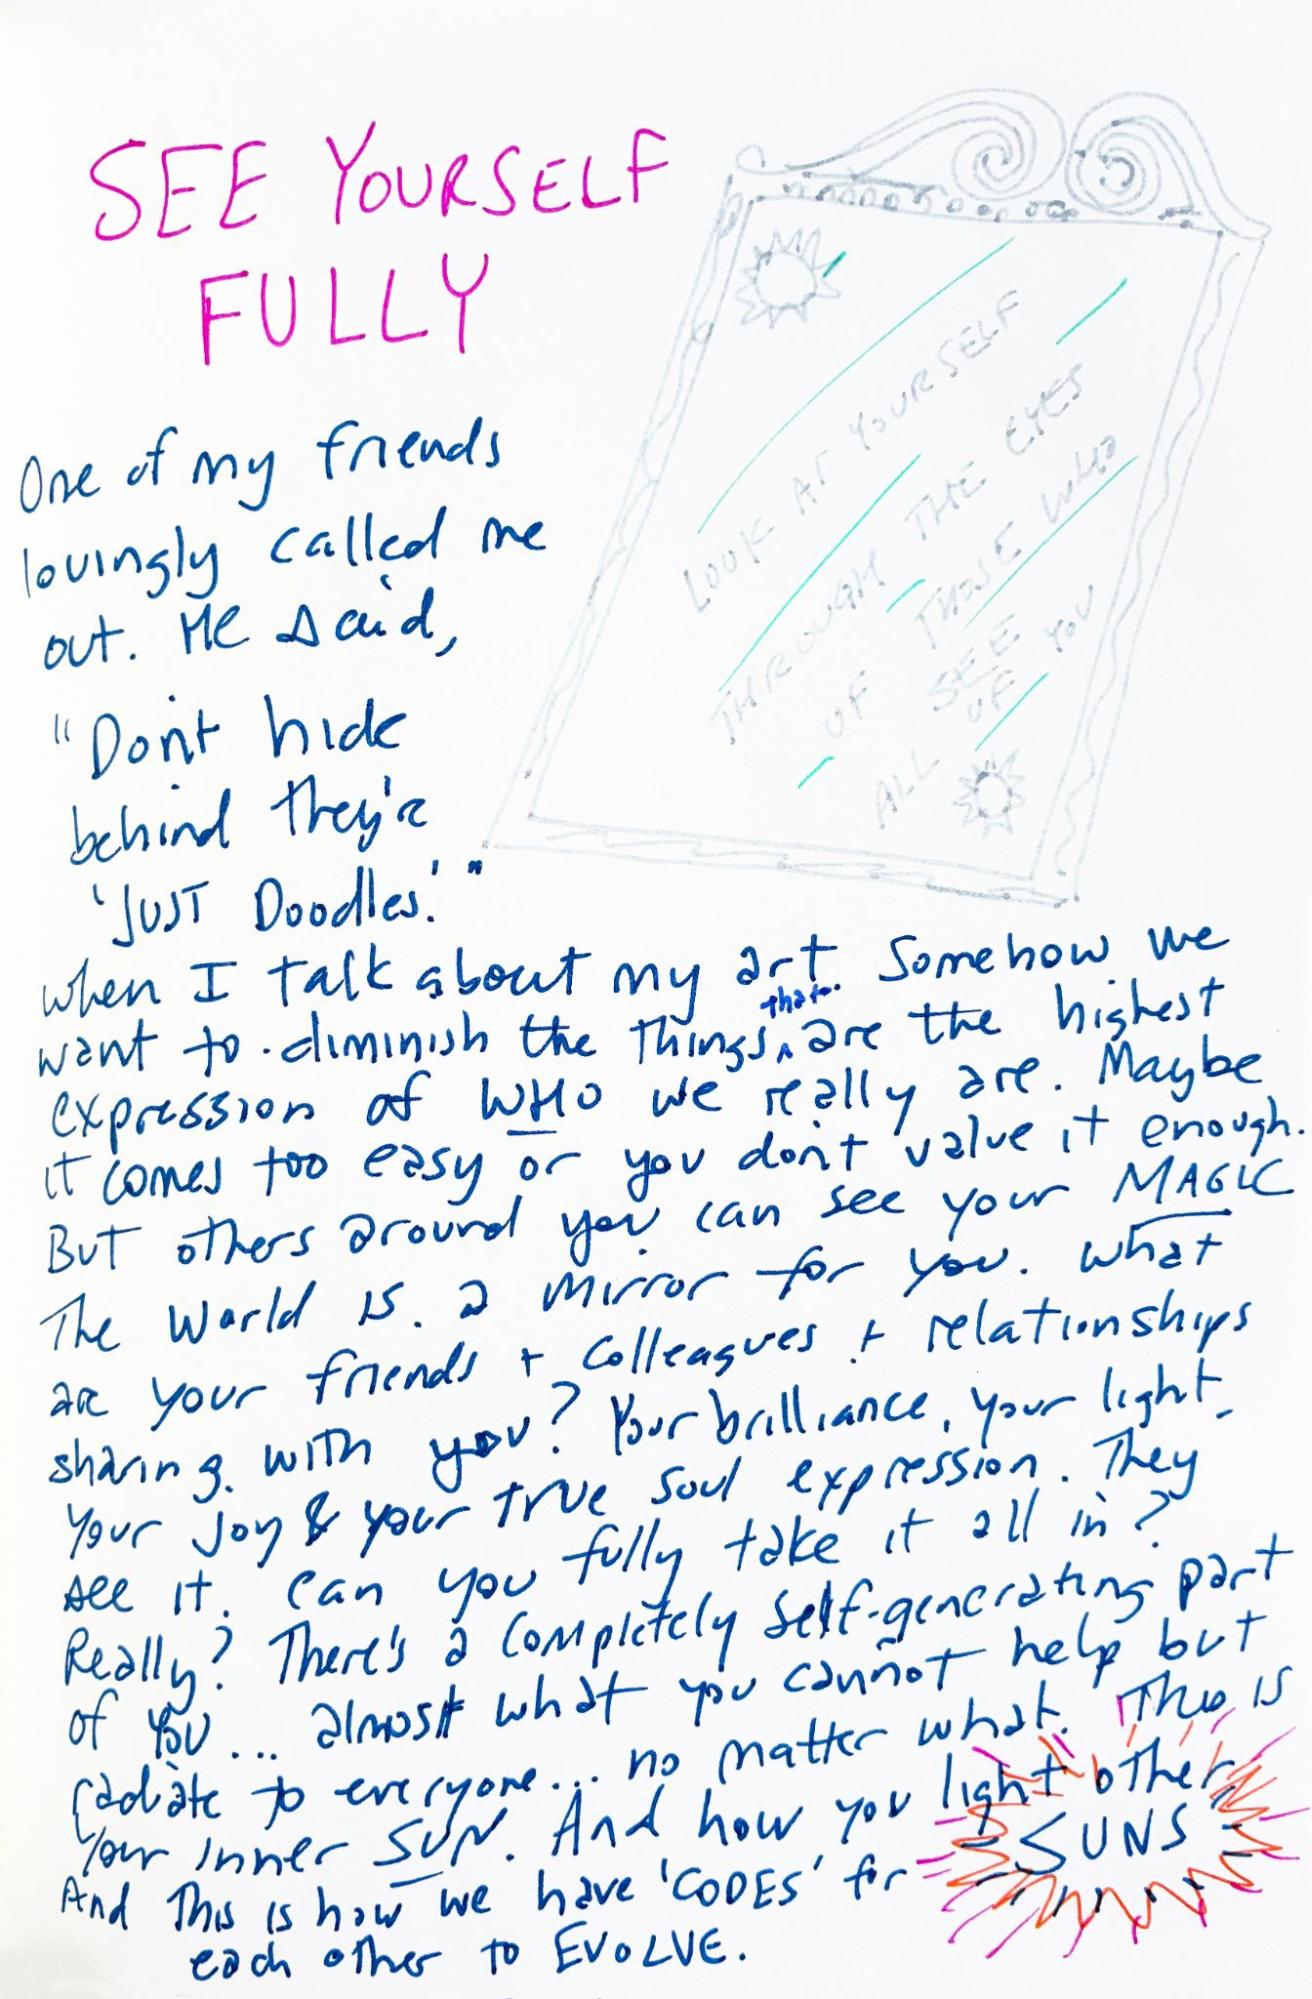 SEE YOURSELF
FULLY
LOOK AT YOURSELF
THROUGH THE EYES
OF THOSE WHO
SEE
ALL OF YOU
One of my friends
lovingly called me
out. He said,
"Don't hide
behind they're
'JUST Doodles.'"
when I talk about my art. Somehow we
want to diminish the things that are the highest
expression of WHO we really are. Maybe
it comes too easy or you don't value it enough.
But others around you can see your MAGIC
The World is a mirror for you. What
are your friends + colleagues + relationships
sharing with you? Your brilliance, your light,
your joy & your true soul expression. They
see it. Can you fully take it all in?
Really? There's a completely self-generating part
of you... almost what you cannot help but
radiate to everyone... no matter what. This is
your inner SUN. And how you light other
SUNS
And this is how we have 'CODES' for
each other to EVOLVE.